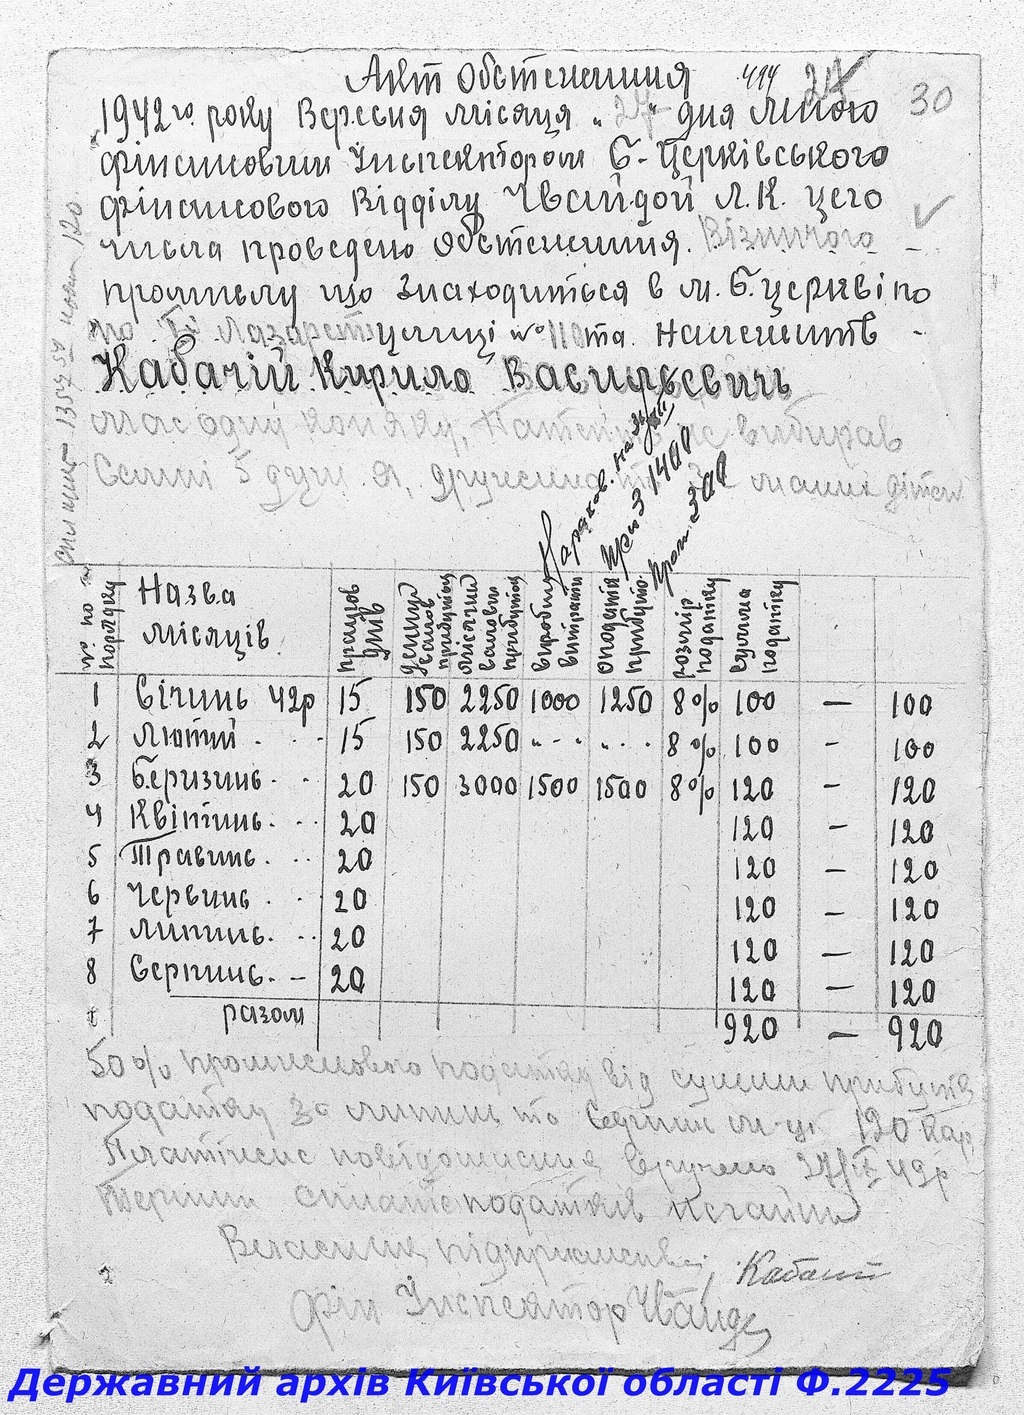 Акт Обстеження 414 24 30
1942 го. року Вересня місяця „27“ дня Мною
фінансовим Інспектором Б-Церківського
фінансового Відділу Чвайдой Л.К. цего
числа проведено Обстеження. Візничого
промислу що знаходиться в м. Б.церкві по
по Лазарет улиці № 110 та. Належить
Кабачій Кирило Васильєвичь
має одну коняку, Патент не вибирав
Семні 5 душ. я, дружина та 3 малих дітей
Нараков.
при 3 1400
прот 300
№ по порядку | Назва місяців. | працов днів | денний валов прибуток | місячний валовий прибуток | виробн витрати | оподатк прибуток | розмір податку | сумма податку
1 Січинь 42р 15 150 2250 1000 1250 8% 100 — 100
2 Лютий . . . 15 150 2250 „ - - „ . . . 8% 100 - 100
3 Беризинь. . . 20 150 3000 1500 1500 8% 120 - 120
4 Квітинь. . . 20 120 - 120
5 Травинь. . . 20 120 - 120
6 Червинь . . . 20 120 - 120
7 Липинь. . . 20 120 - 120
8 Серпинь. - 20 120 - 120
разом 920 — 920
50% промислового податку від сумми прибутків
податку за липинь та Серпинь м-ці 120 кар
Платіжне повідомлення вручено 27/IX 42р
Термин сплати податків негайно
Власник підприємства, Кабачій
Фін Інспектор Чвайда
Державний архів Київської області Ф.2225